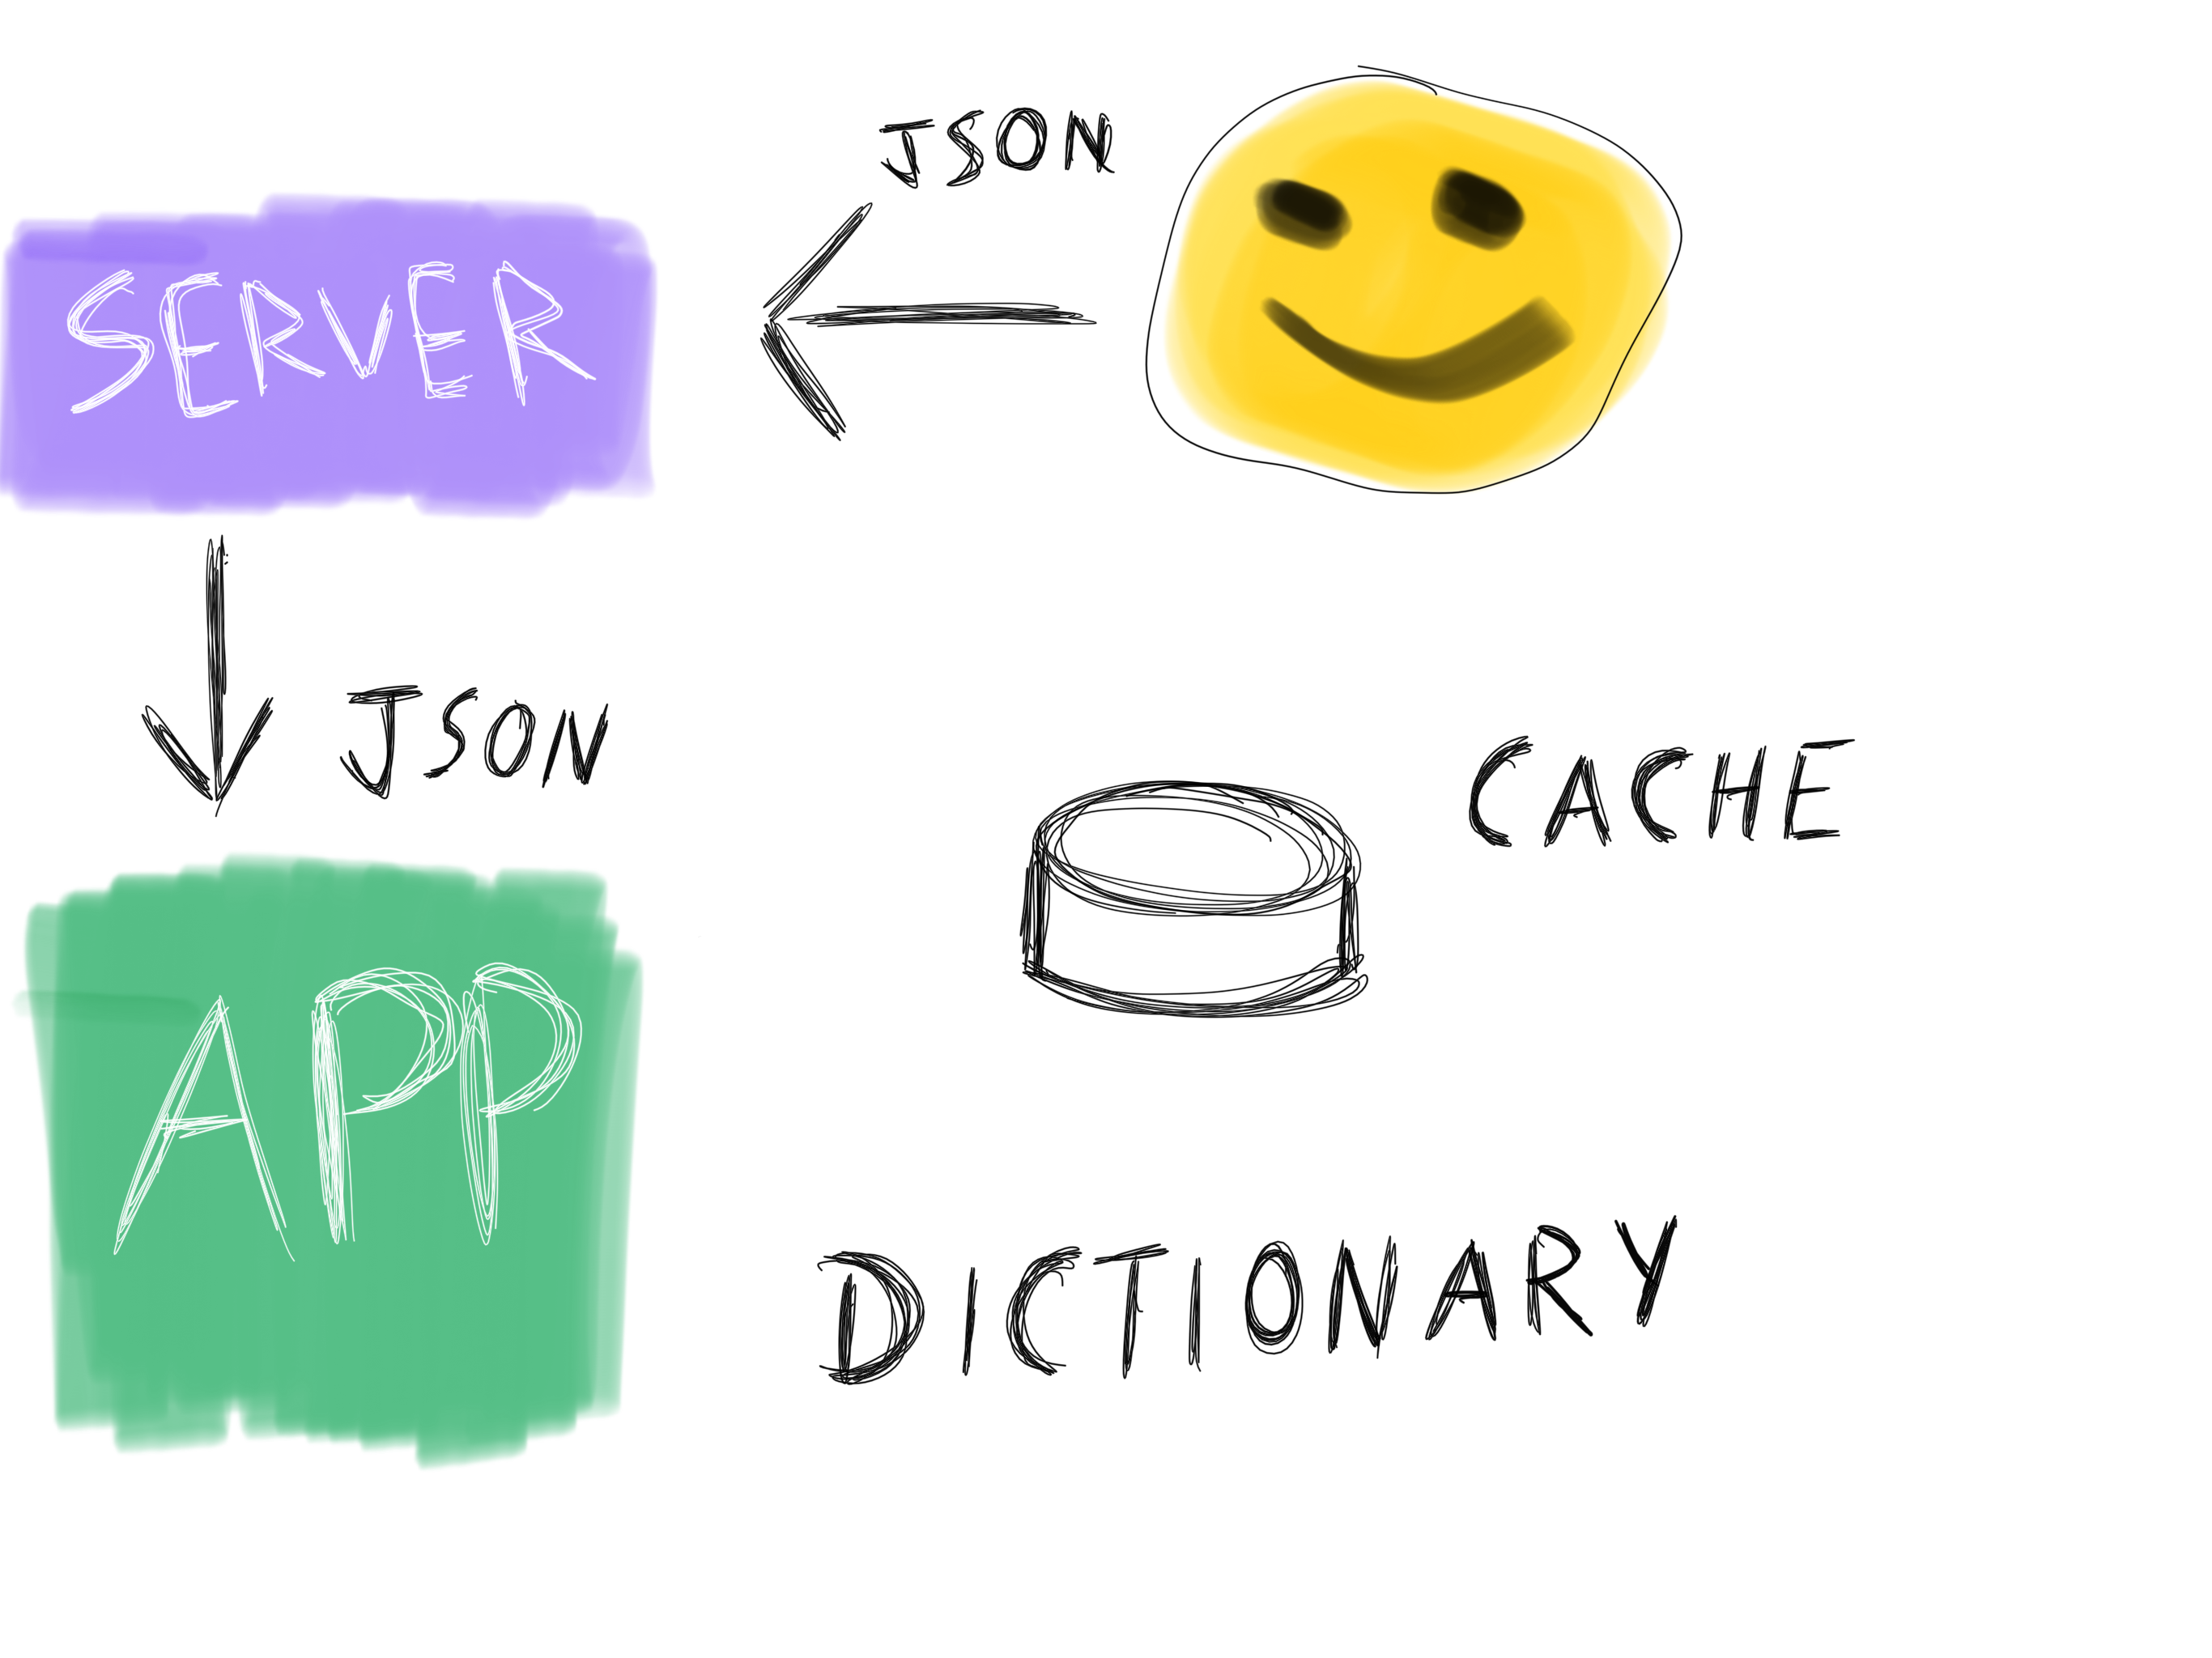 JSON
SERVER
JSON
CACHE
APP
DICTIONARY